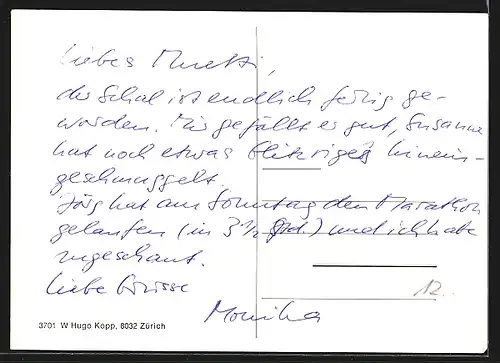 Liebes Muetti,
der Schal ist endlich fertig ge-
worden. Mir gefällt er gut, Susanne
hat noch etwas Glitzriges hinein-
geschmuggelt.
Jörg hat am Sonntag den Marathon
gelaufen (in 3 1/2 Std.) und ich habe
zugeschaut.
Liebe Grüsse
Monika
12.-
3701 W Hugo Kopp, 8032 Zürich